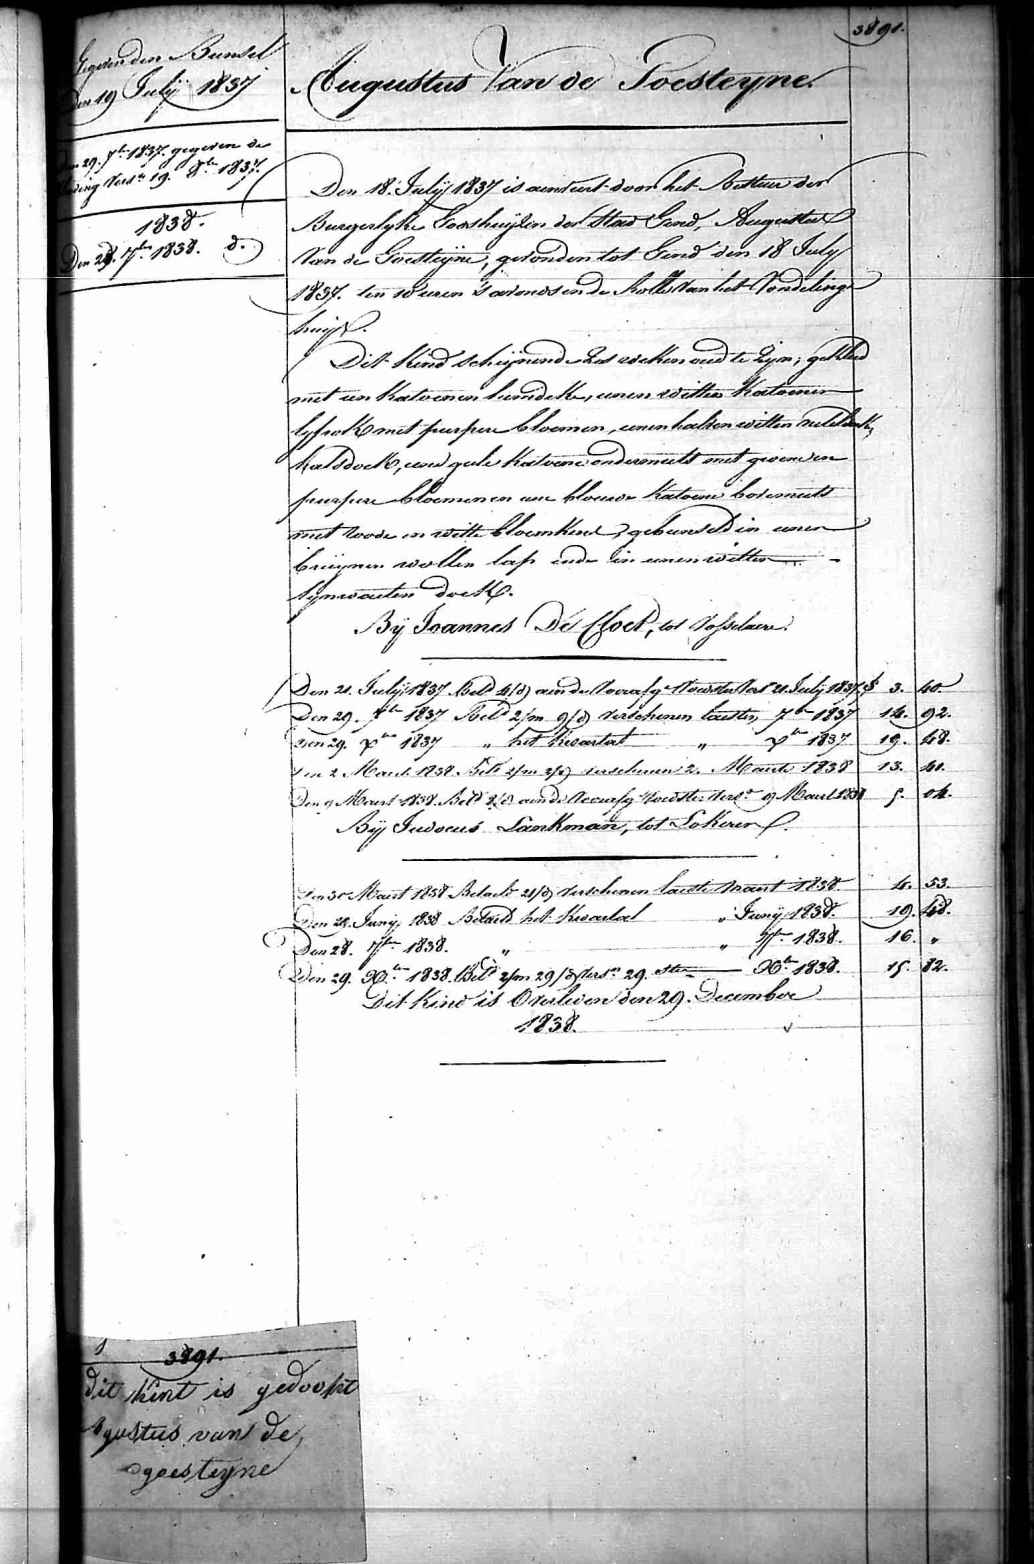 3891.
Gegeven den Bunsel
Den 19 July 1837
Den 29. 7br 1837. gegeven de
kleeding vers. 19. 8br 1837.
1838.
Den 28. 7br 1838. d.
Augustus Van de Goesteyne.
Den 18. July 1837 is aenveert door het Bestuer der
Burgerlyke Godshuyzen der Stad Gend, Augustus
Van de Goesteyne, gevonden tot Gend den 18 July
1837. ten 10 uren 's avonds in de Rolle van het Vondeling
huys.
Dit Kind schynende zes weken oud te zyn; gekleed
met een katoenen hemdeke, eenen witten katoenen
lyfrok met purpere bloemen, eenen halven witten neteldoek
halsdoek, eene gele katoene ondermuts met groene en
purpere bloemen en eene blauwe katoene bovemuts
met roode en witte bloemkens, gebunseld in eenen
bruynen wollen lap ende in eenen witten
lynwaeten doek.
By Joannes De Cloet, tot Vosselaere.
Den 21. July 1837 Beld 4/d aen de voorafge voedster vers 21 July 1837 f 3. 40.
Den 29. 7br 1837 Beld 2/m 9/d verschenen laesten 7br 1837 14. 92.
Den 29. Xbr 1837 " het kwartael " Xbr 1837 19. 48.
Den 2 Maert 1838 Beld 2/m 2/d verschenen 2. Maerte 1838 13. 41.
Den 9 Maert 1838 Beld 8/d aen de voorafge voedster vers. 9 Maert 1838 5. 04.
By Judocus Lankman, tot Lokeren.
Den 30 Maert 1838 Betaelt 21/d verschenen laeste Maert 1838. 4. 53.
Den 29. Juny 1838 Betaeld het Kwartael " Juny 1838. 19. 48.
Den 28. 7br 1838. " " 7br 1838. 16. "
Den 29. Xbr 1838. Beld 2/m 29/d vers. 29. Xbr 1838. 15. 82.
Dit Kind is Overleden den 29. December
1838.
3891.
dit kint is gedoopt
Agustus van de
goesteyne